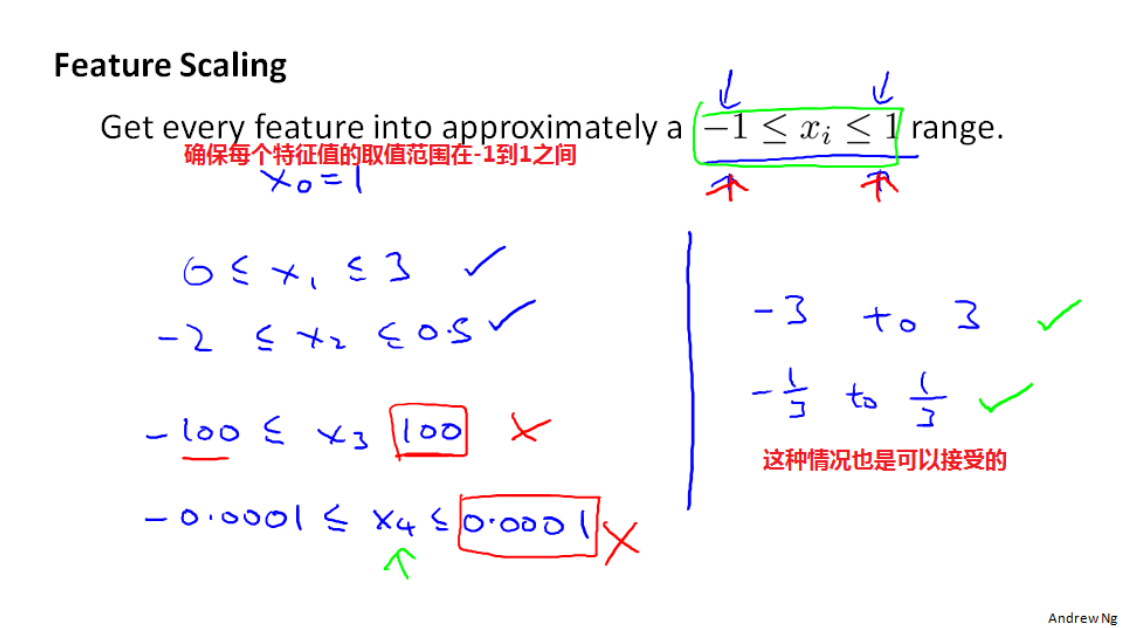 Feature Scaling
Get every feature into approximately a -1 ≤ xᵢ ≤ 1 range.
确保每个特征值的取值范围在-1到1之间
x₀=1
0 ≤ x₁ ≤ 3 ✓
-2 ≤ x₂ ≤ 0.5 ✓
-100 ≤ x₃ 100 ×
-0.0001 ≤ x₄ ≤ 0.0001 ×
-3 to 3 ✓
-1/3 to 1/3 ✓
这种情况也是可以接受的
Andrew Ng